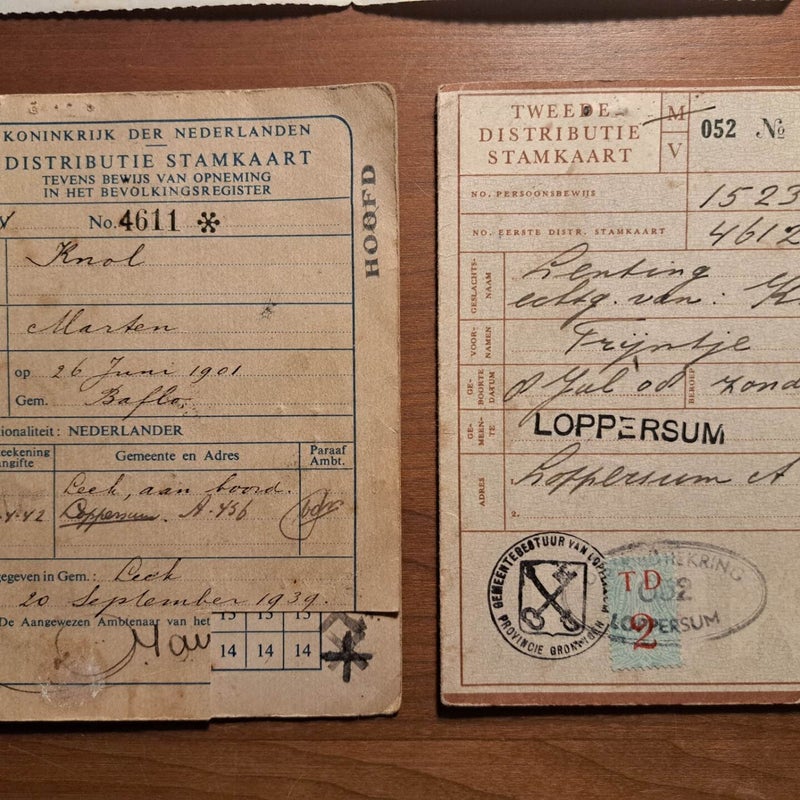 KONINKRIJK DER NEDERLANDEN
DISTRIBUTIE STAMKAART
TEVENS BEWIJS VAN OPNEMING
IN HET BEVOLKINGSREGISTER
No. 4611 *
HOOFD
Knol
Marten
op 26 Juni 1901
Gem. Baflo.
ionaliteit: NEDERLANDER
eekening
ngifte
Gemeente en Adres
Paraaf
Ambt.
Leek, aan boord.
-4-42 Loppersum. A. 456
egeven in Gem.: Leek
20 September 1939.
De Aangewezen Ambtenaar van het
13 13 13
14 14 14
TWEEDE
DISTRIBUTIE
STAMKAART
M
V
052 No
NO. PERSOONSBEWIJS
1523
NO. EERSTE DISTR. STAMKAART
4612
GESLACHTS-
NAAM
Lenting
echtg. van: K
VOOR-
NAMEN
Trijntje
GE-
BOORTE
DATUM
8 Jul 00
BEROEP
zond
GE-
MEEN-
TE
LOPPERSUM
ADRES
Loppersum A
2.
GEMEENTEBESTUUR VAN LOPPERSUM
PROVINCIE GRONINGEN
KRING
052
LOPPERSUM
TD
2